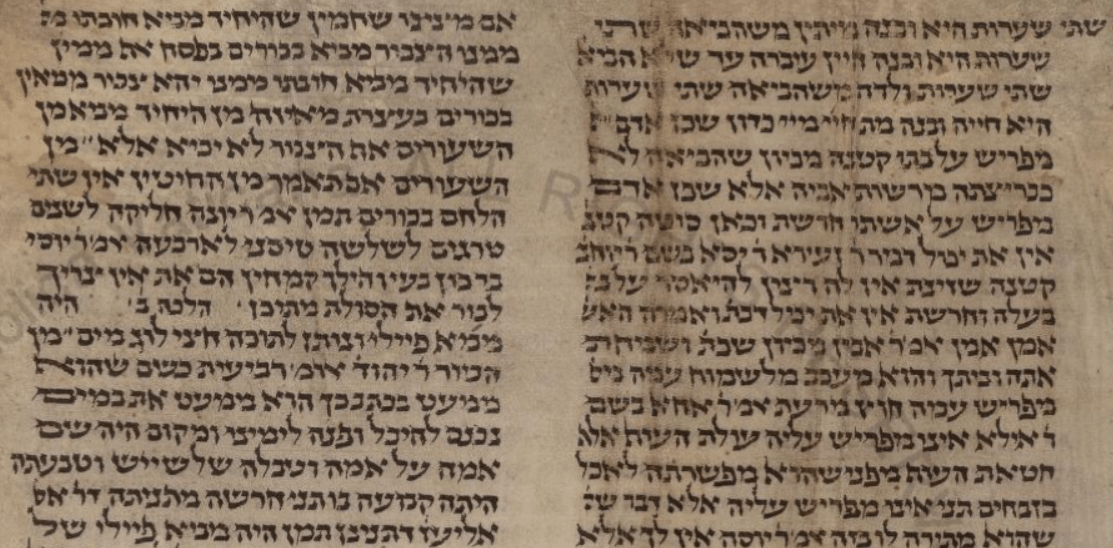 שתי שערות היא ובנה מיתין משהביאה שתי
שערות היא ובנה חיין עיברה עד שלא הביא
שתי שערות ולדה משהביאה שתי שערות
היא חייה ובנה מת חיימיי כדון שכן אדם
מפריש על בתו קטנה מכיון שהביאה לא
ככר יצתה מרשות אביה אלא שכן אדם
מפריש על אשתו חרשת וכאן סוטה קטנ
אין את יכול דביר ר זעירא ר יסא בשם ר יוחנ
קטנה שזינת אין לה רצון להיאסר על בע
בעלה וחרשת אין את יכול דכת ואמרה האש
אמן אמן אמ׳ ר׳ אבין מכיון שכת׳ ושכיח
אתה וביתך והוא מעכב מלשמוח עמה ביט
מפריש עמה חוץ מדעת אמ׳ ר׳ אחא בשם
ר אילא אינו מפריש עליה עולת העוף אלא
חטאת העוף מפני שהוא מפשרתה לאכל
בזבחים תני אינו מפריש עליה אלא דבר שה
שהוא מתירה לו בזה אמ׳ ר׳ יוסה אין לך אלא
אם מצינו שהמין שהיחיד מביא חובתו
ממנו הציבור מביא בכורים בפסח את ממין
שהיחיד מביא חובתו ממנו יהא ציבור מביאין
בכורים בעצרת מאיזה מן היחיד מביא מן
השעורים את הציבור לא יביא אלא מן
השעורים אם תאמר מן החיטין אין שתי
הלחם בכורים תמן אמ׳ ר יונה חליקה לשנים
טרגים לשלשה טיסני לארבעה אמ׳ ר יוסי
בר בון בעון הילך קמחין הם את אין צריך
לבור את הסולת מתיכן הלכה ב היה
מביא פיילי ונותן לתוכה חצי לוג מים מן
הכיור ר׳ יהודה אומ׳ רביעית כשם שהוא
ממעט בכתב כך הוא ממעט את במים
נכנס להיכל ופנה לימינו ומקום היה שם
אמה על אמה וטבלה של שייש וטבעת
היתה קבועה בו תני חדשה מתניתה דר׳ אס
אליעז׳ דתנינן תמן היה מביא פיילי של